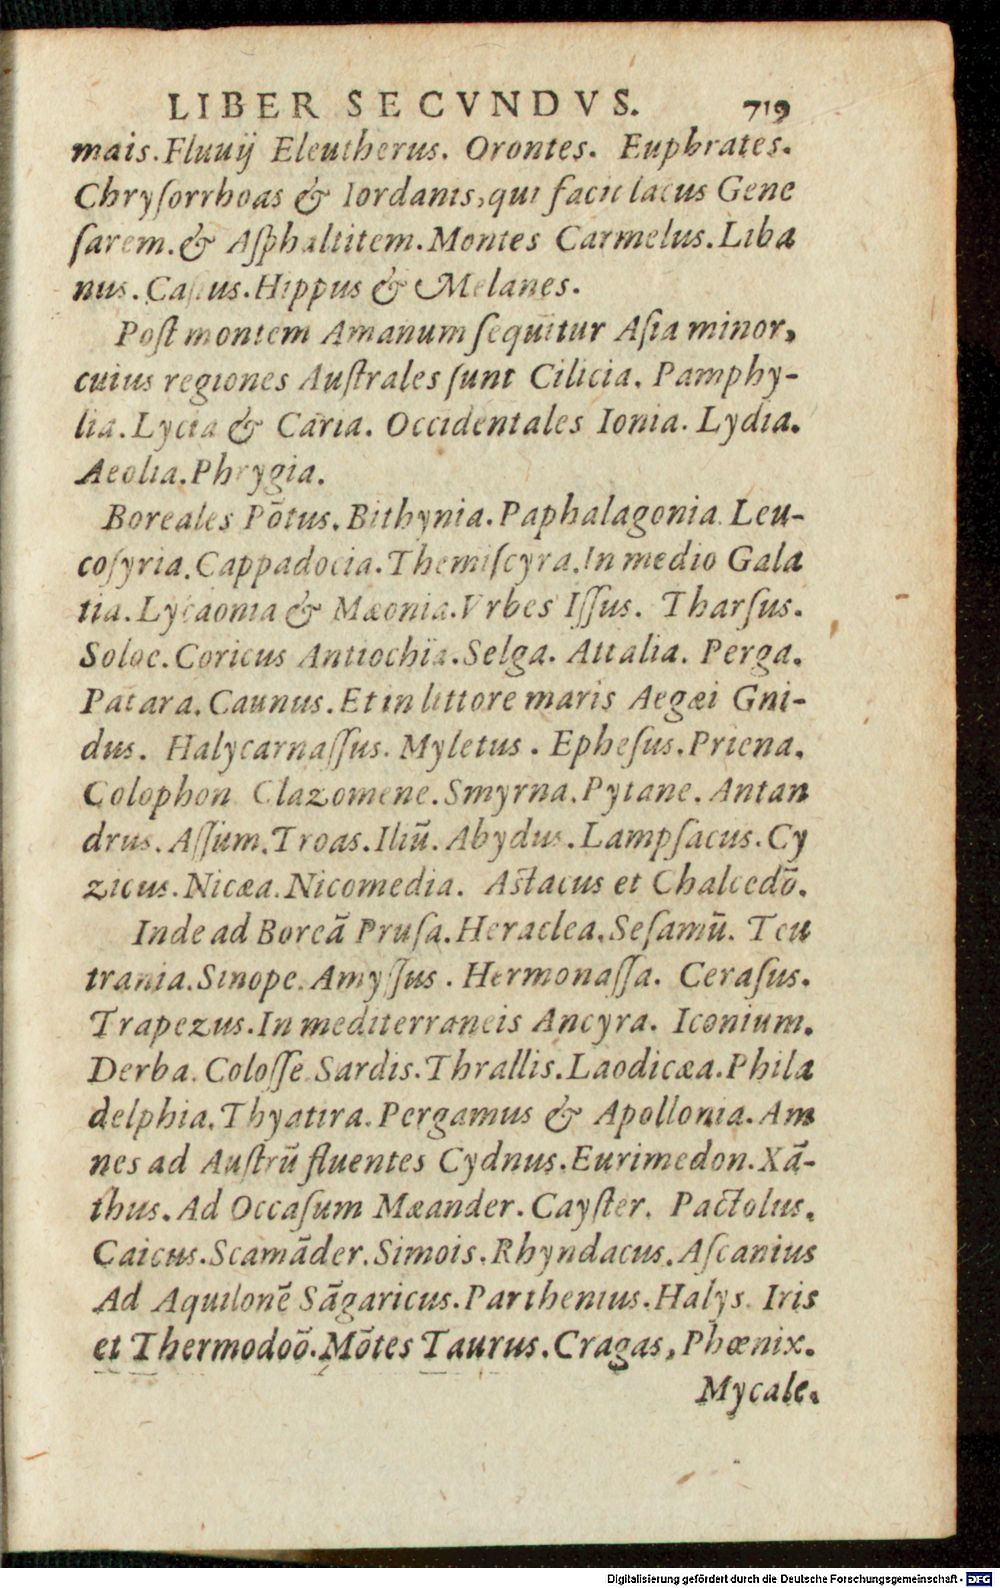 LIBER SECVNDVS. 719
mais. Fluuij Eleutherus. Orontes. Euphrates.
Chryſorrhoas & Iordanis, qui facit lacus Gene
ſarem. & Aſphaltitem. Montes Carmelus. Liba
nus. Caſius. Hippus & Melanes.
Poſt montem Amanum ſequitur Aſia minor,
cuius regiones Auſtrales ſunt Cilicia. Pamphy-
lia. Lycia & Caria. Occidentales Ionia. Lydia.
Aeolia. Phrygia.
Boreales Põtus. Bithynia. Paphalagonia. Leu-
coſyria. Cappadocia. Themiſcyra. In medio Gala
tia. Lycaonia & Mæonia. Vrbes Iſſus. Tharſus.
Soloe. Coricus Antiochïa. Selga. Attalia. Perga.
Patara. Caunus. Et in littore maris Aegæi Gni-
dus. Halycarnaſſus. Myletus. Epheſus. Priena.
Colophon Clazomene. Smyrna. Pytane. Antan
drus. Aſſum. Troas. Iliũ. Abydus. Lampſacus. Cy
zicus. Nicæa. Nicomedia. Aſtacus et Chalcedõ.
Inde ad Boreã Pruſa. Heraclea. Seſamũ. Teu
trania. Sinope. Amyſſus. Hermonaſſa. Ceraſus.
Trapezus. In mediterraneis Ancyra. Iconium.
Derba. Coloſſe Sardis. Thrallis. Laodicæa. Phila
delphia. Thyatira. Pergamus & Apollonia. Am
nes ad Auſtrũ fluentes Cydnus. Eurimedon. Xã-
thus. Ad Occaſum Mæander. Cayſter. Pactolus.
Caicus. Scamãder. Simois. Rhyndacus. Aſcanius
Ad Aquilonẽ Sãgaricus. Parthenius. Halys. Iris
et Thermodoõ. Mõtes Taurus. Cragas, Phœnix.
Mycale.
Digitalisierung gefördert durch die Deutsche Forschungsgemeinschaft - DFG